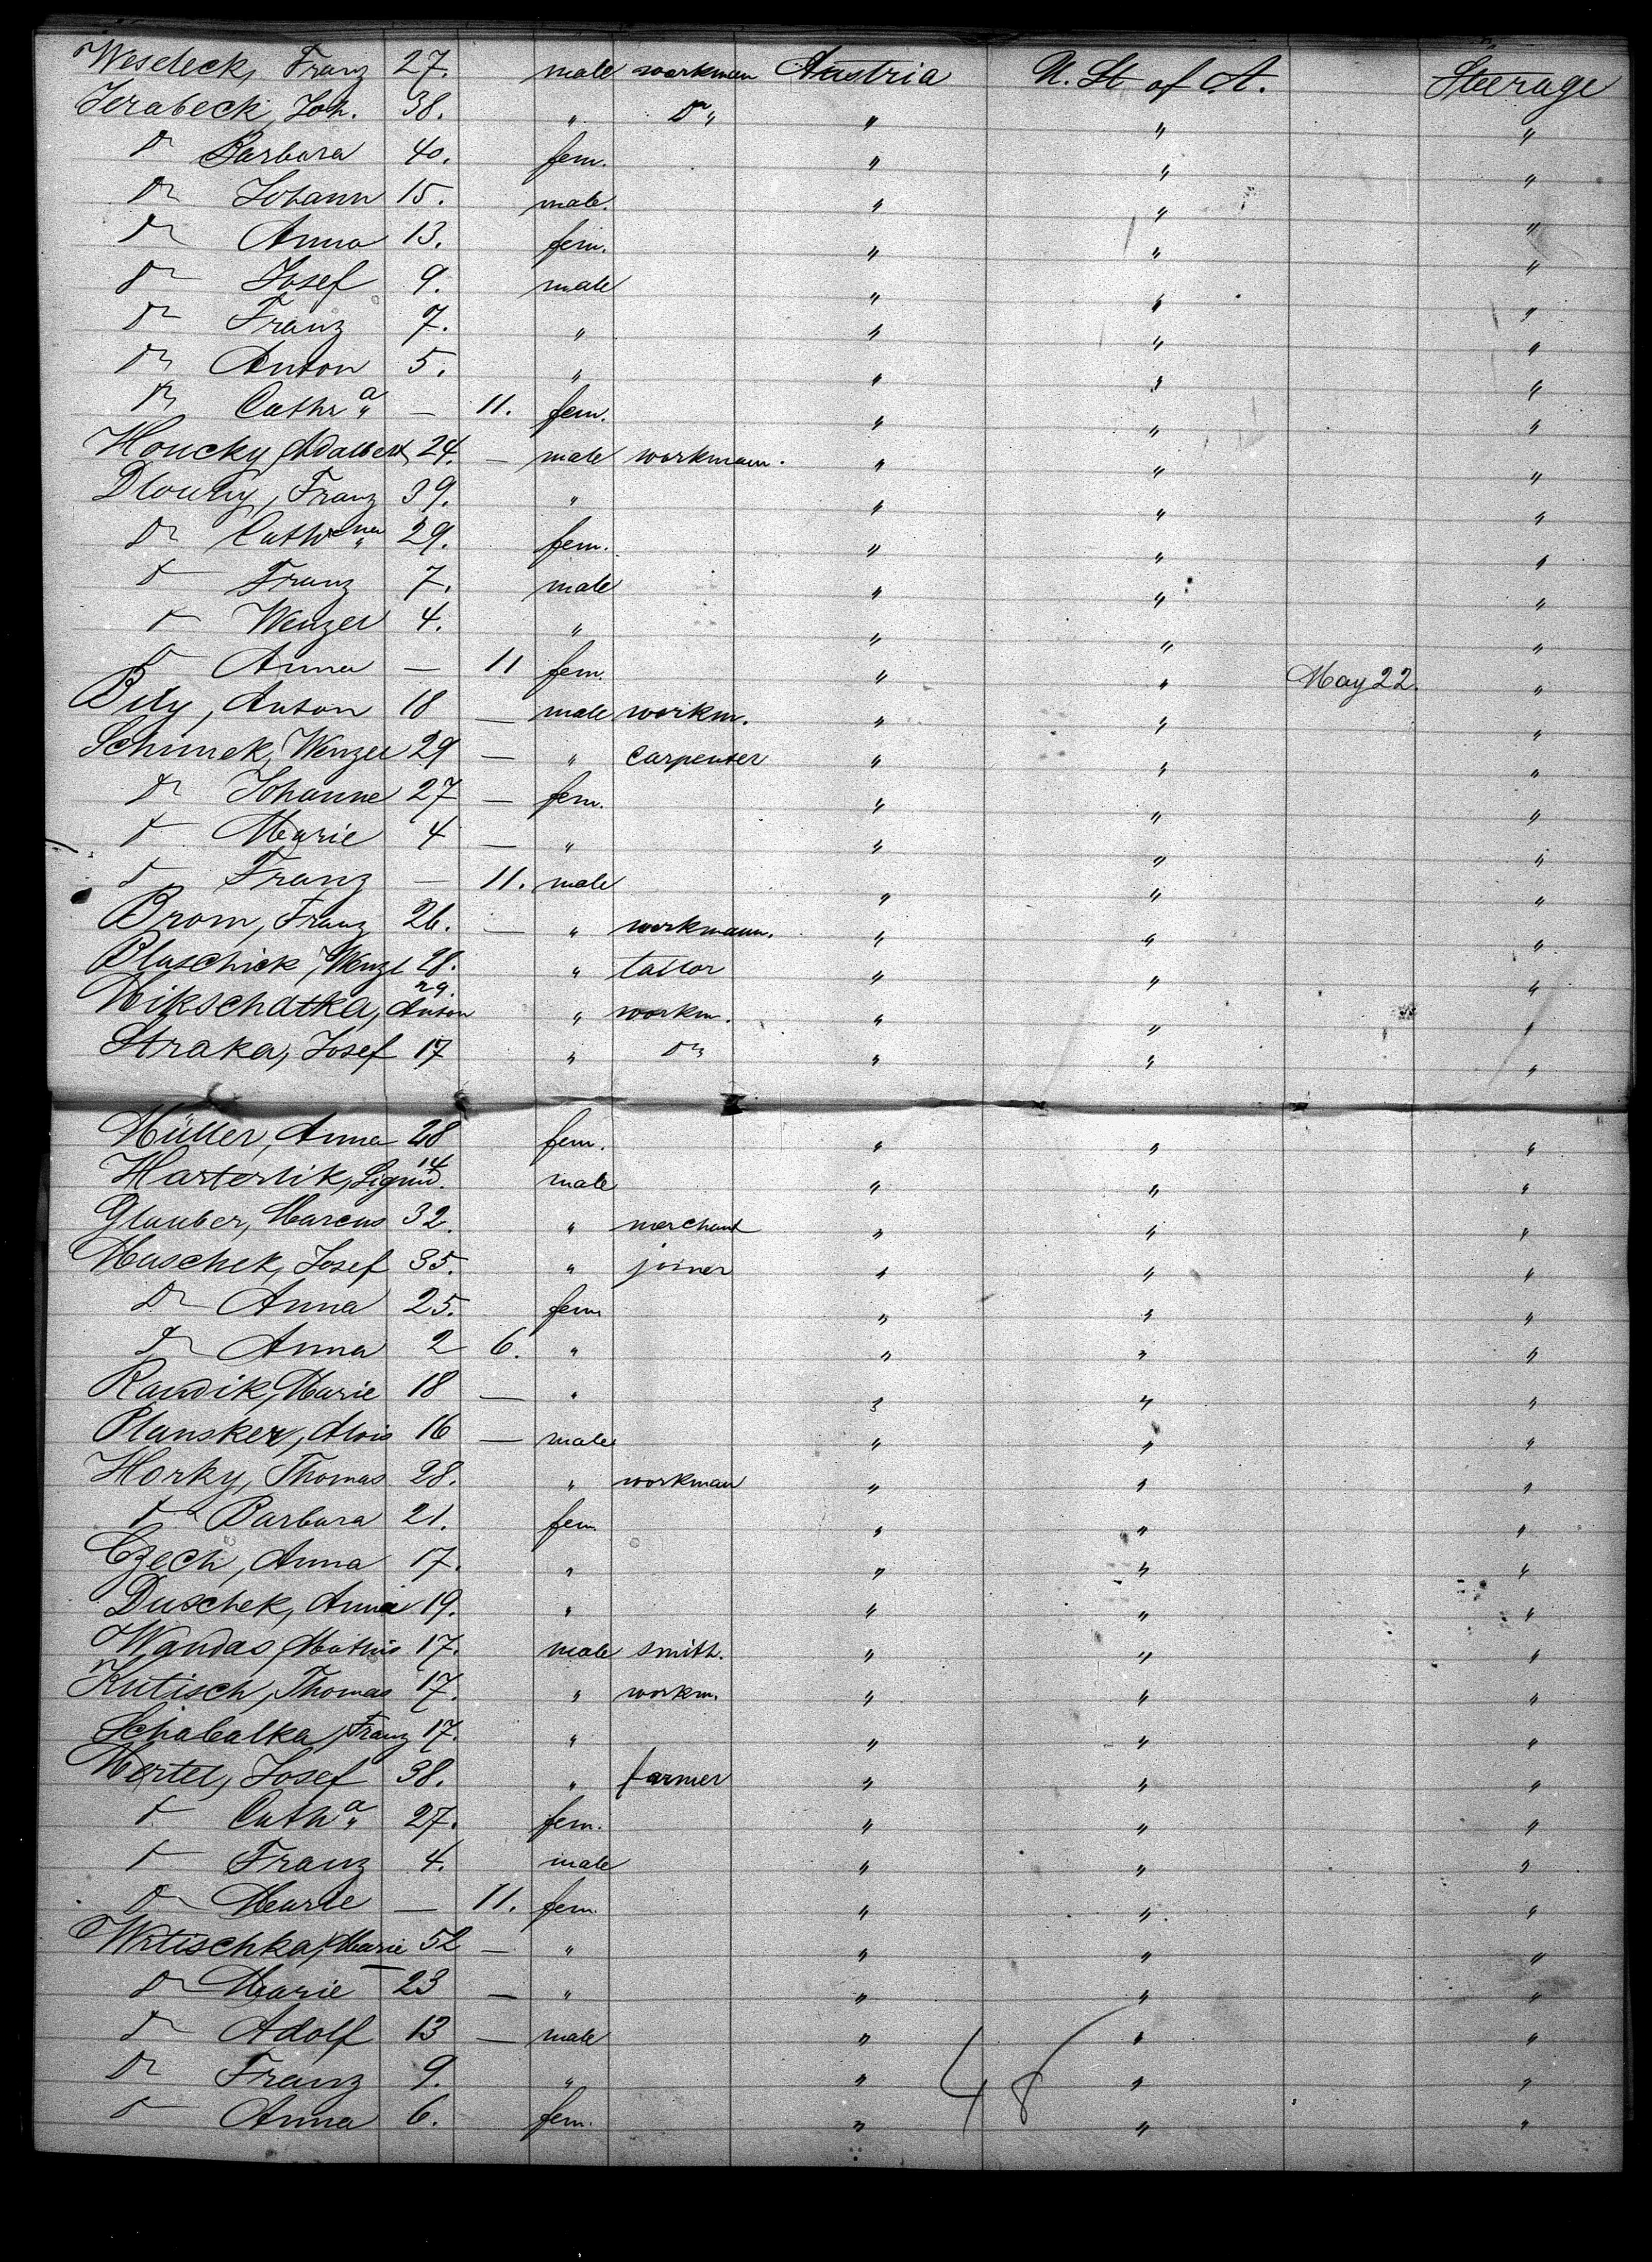 Wesdeck, Franz 27. male workman Austria U. St of A. Steerage
Jerabeck, Joh. 38. " Do " " " "
Do Barbara 40. fem. " " "
Do Johann 15. male. " " "
Do Anna 13. fem. " " "
Do Josef 9. male " " "
Do Franz 7. " " " "
Do Anton 5. " " " "
Do Cathra — 11. fem. " " "
Houcky, Adalbert, 24. — male workmann. " " "
Dlouhy, Franz 39. " " " "
Do Cathrina 29. fem. " " "
Do Franz 7. male " " "
Do Wenzel 4. " " " "
Do Anna — 11 fem. " " May 22. "
Bily, Anton 18 — male workm. " " "
Schimek, Wenzel 29 — " Carpenter " " "
Do Johanne 27 — fem. " " "
Do Marie 4 — " " " "
Do Franz — 11. male " " "
Brom, Franz 26. — " workmann. " " "
Blaschick, Wenzl 28. " tailor " " "
Mikschatka, Anton 29. " workm. " " "
Straka, Josef 17 " Do " " "
Müller, Anna 28 fem. " " "
Harterlik, Sigmd. 14 male " " "
Glauber, Marcus 32. " merchant " " "
Maschek, Josef 35. " joiner " " "
Do Anna 25. fem " " "
Do Anna 2 6. " " " "
Randik, Marie 18 — " " " "
Plansker, Alois 16 — male " " "
Horky, Thomas. 28. " workman " " "
Do Barbara 21. fem " " "
Czech, Anna 17. " " " "
Duschek, Anna 19. " " " "
Wandas, Mathis 17. male smith. " " "
Kutisch, Thomas 17. " workm. " " "
Schabalka, Franz 17. " " " "
Mertel, Josef 38. " farmer " " "
Do Catha 27. fem. " " "
Do Franz 4. male " " "
Do Marie — 11. fem. " " "
Wrtischka, Marie 52 — " " " "
Do Marie 23 — " " " "
Do Adolf 13 — male " " "
Do Franz 9. " " " "
Do Anna 6. fem. " " "
48